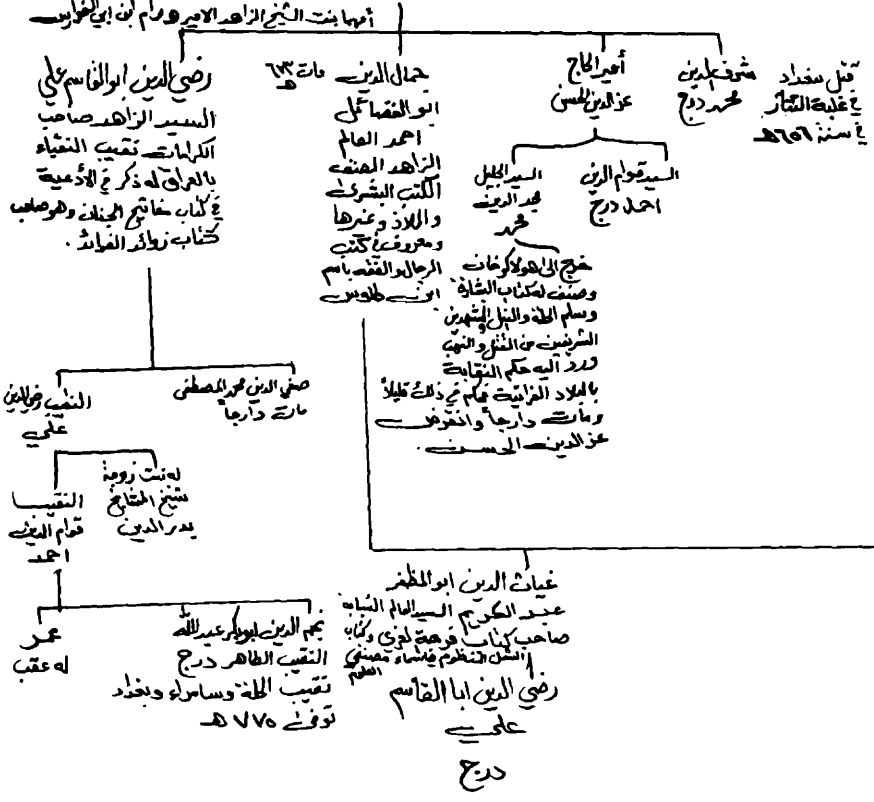 أمهما بنت الشيخ الزاهد الامير ورام ابن ابي الفوارس
قتل ببغداد
في غلبة التتار
في سنة ٦٥٦هـ
شرف الدين
محمد درج
أمير الحاج
عز الدين الحسن
السيد قوام الدين
احمد درج
السيد الجليل
مجد الدين
محمد
خرج الى هولاكو خان
وصنف له كتاب البشارة
وسلم الحلة والنيل والمشهدين
الشريفين من القتل والنهب
ورد اليه حكم النقابة
بالبلاد الفراتية فحكم في ذلك قليلاً
ومات دارجاً وانقرض
عز الدين الحسن .
جمال الدين مات ٦٧٣هـ
ابو الفضائل
احمد العالم
الزاهد المصنف
الكتب البشرى
والملاذ وغيرها
ومعروف في كتب
الرجال والفقه باسم
ابن طاوس
رضي الدين ابو القاسم علي
السيد الزاهد صاحب
الكرامات نقيب النقباء
بالعراق له ذكر في الأدعية
في كتاب مفاتيح الجنان وهو صاحب
كتاب زوائد الفوائد .
صفي الدين محمد المصطفى
مات دارجاً
النقيب رضي الدين
علي
له بنت زوجة
شيخ المشايخ
بدر الدين
النقيب
قوام الدين
احمد
نجم الدين ابو بكر عبد الله
النقيب الطاهر درج
نقيب الحلة وسامراء وبغداد
توفى ٧٧٥ هـ
عمر
له عقب
غياث الدين ابو المظفر
عبد الكريم السيد العالم النسابة
صاحب كتاب فرحة الغري وكتاب
الشمل المنظوم في اسماء مصنفي
العلوم
رضي الدين ابا القاسم
علي
درج